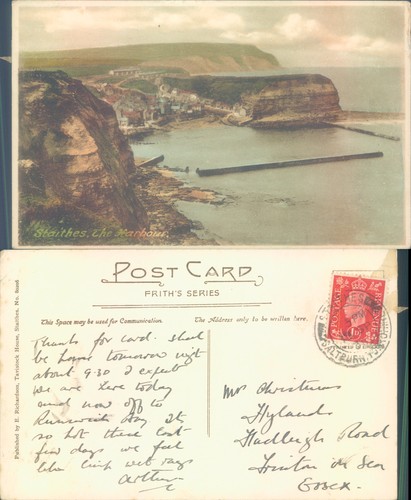 Staithes, The Harbour.
POST CARD
FRITH'S SERIES
This Space may be used for Communication.
The Address only to be written here.
Published by E. Richardson, Tavistock House, Staithes.
Thanks for card. Shall
be home tomorrow night
about 9.30 I expect
We are here today
and now off to
Runswick Bay. It
so hot these last
few days we feel
like limp wet rags
Arthur
Mrs Christmas
Hylands
Hadleigh Road
Frinton on Sea
Essex.
POSTAGE
REVENUE
SALTBURN